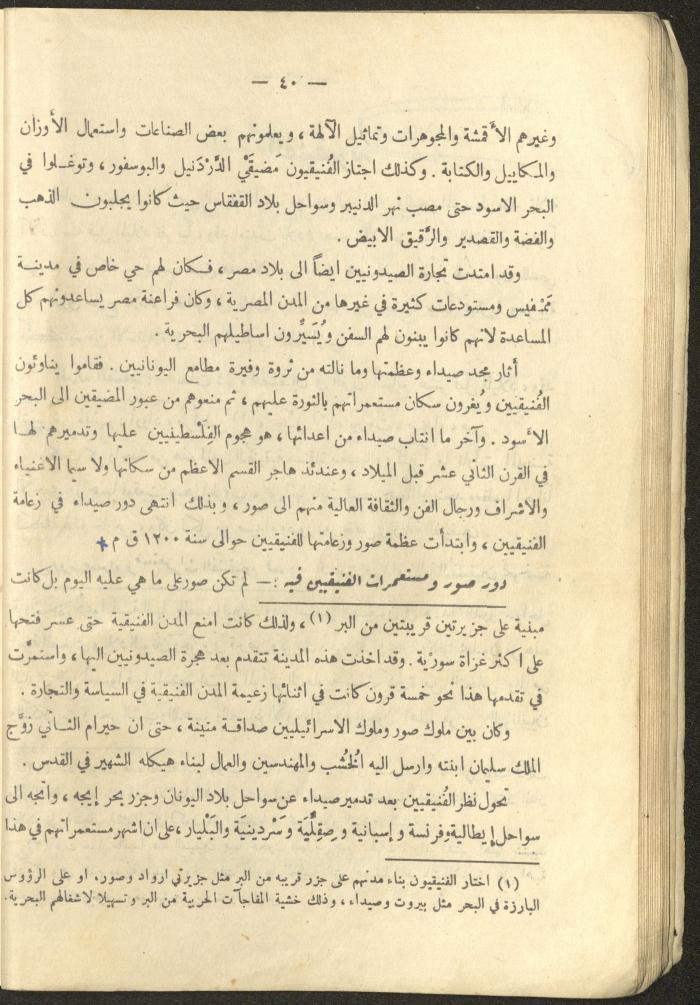 — ٤٠ —
وغيرهم الأقمشة والمجوهرات وتماثيل الآلهة ، ويعلمونهم بعض الصناعات واستعمال الأوزان
والمكاييل والكتابة . وكذلك اجتاز الفُنيقيون مَضيقَي الدَّرْدَنيل والبوسفور ، وتوغـلوا في
البحر الاسود حتى مصب نهر الدنيبر وسواحل بلاد القفقاس حيث كانوا يجلبون الذهب
والفضة والقصدير والرَّقيق الابيض .
وقد امتدت تجارة الصيدونيين ايضاً الى بلاد مصر ، فـكان لهم حي خاص في مدينـة
مَمْفيس ومستودعات كثيرة في غيرها من المدن المصرية ، وكان فراعنة مصر يساعدونهم كل
المساعدة لانهم كانوا يبنون لهم السفن ويُسَيِّرون اساطيلهم البحرية .
أثار مجد صيداء وعظمتها وما نالته من ثروة وفيرة مطامع اليونانيين . فقاموا يناوئون
الفُنيقيين ويُغرون سكان مستعمراتهم بالثورة عليهم ، ثم منعوهم من عبور المضيقين الى البحر
الأسود . وآخر ما انتاب صيداء من اعدائها ، هو هجوم الفِلَسْطينيين عليها وتدميرهم لهـا
في القرن الثاني عشر قبل الميلاد ، وعندئذ هاجر القسم الاعظم من سكانها ولا سيما الاغنياء
والاشراف ورجال الفن والثقافة العالية منهم الى صور ، وبذلك انتهى دور صيداء في زعامة
الفنيقيين ، وابتدأت عظمة صور وزعامتها للفنيقيين حوالى سنة ١٢٠٠ ق م
دور صور ومستعمرات الفنيقيين فيه : — لم تكن صور على ما هي عليه اليوم بل كانت
مبنية على جزيرتين قريبتين من البر (١) ، ولذلك كانت امنع المدن الفنيقية حتى عسر فتحها
على اكثر غزاة سورية . وقد اخذت هذه المدينة تتقدم بعد هجرة الصيدونيين اليها ، واستمرَّت
في تقدمها هذا نحو خمسة قرون كانت في اثنائها زعيمة المدن الفنيقية في السياسة والتجارة .
وكان بين ملوك صور وملوك الاسرائيليين صداقـة متينة ، حتى ان حيرام الثـاني زوَّج
الملك سليمان ابنته وارسل اليه الخُشب والمهندسين والعمال لبناء هيكله الشهير في القدس .
تحول نظر الفُنيقيين بعد تدمير صيداء عن سواحل بلاد اليونان وجزر بحر إيجه ، واتجه الى
سواحل إيطالية وفرنسة وإسبانية وصِقِلِّيَة وسَرْدِينيَة والبَلْيار ، على ان اشهر مستعمراتهم في هذا
(١) اختار الفنيقيون بناء مدنهم على جزر قريبه من البر مثل جزيرتي ارواد وصور، او على الرؤوس
البارزة في البحر مثل بيروت وصيداء ، وذلك خشية المفاجآت الحربية من البر وتسهيلا لاشغالهم البحرية.